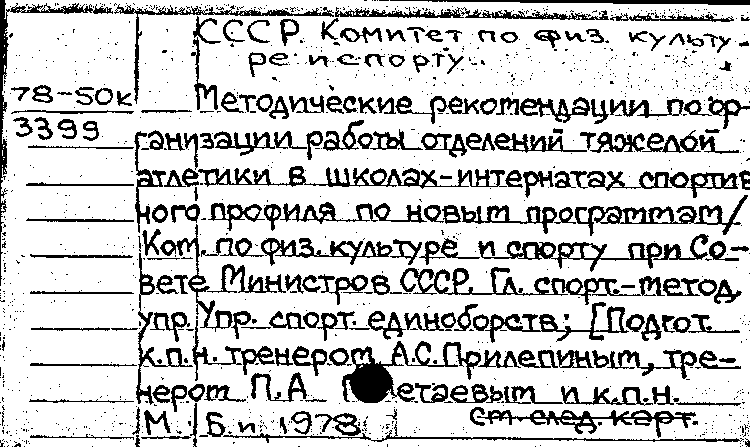 СССР. Комитет по физ. культу-
ре и спорту.
78-50к Методические рекомендации по ор-
3399 ганизации работы отделений тяжелой
атлетики в школах-интернатах спортив
ного профиля по новым программам/
Ком. по физ. культуре и спорту при Со-
вете Министров СССР. Гл. спорт.-метод.
упр. Упр. спорт. единоборств; [Подгот.
к.п.н. тренером А.С.Прилепиным, тре-
нером П.А и к.п.н.
М.: Б.и, 1978 см. след. карт.